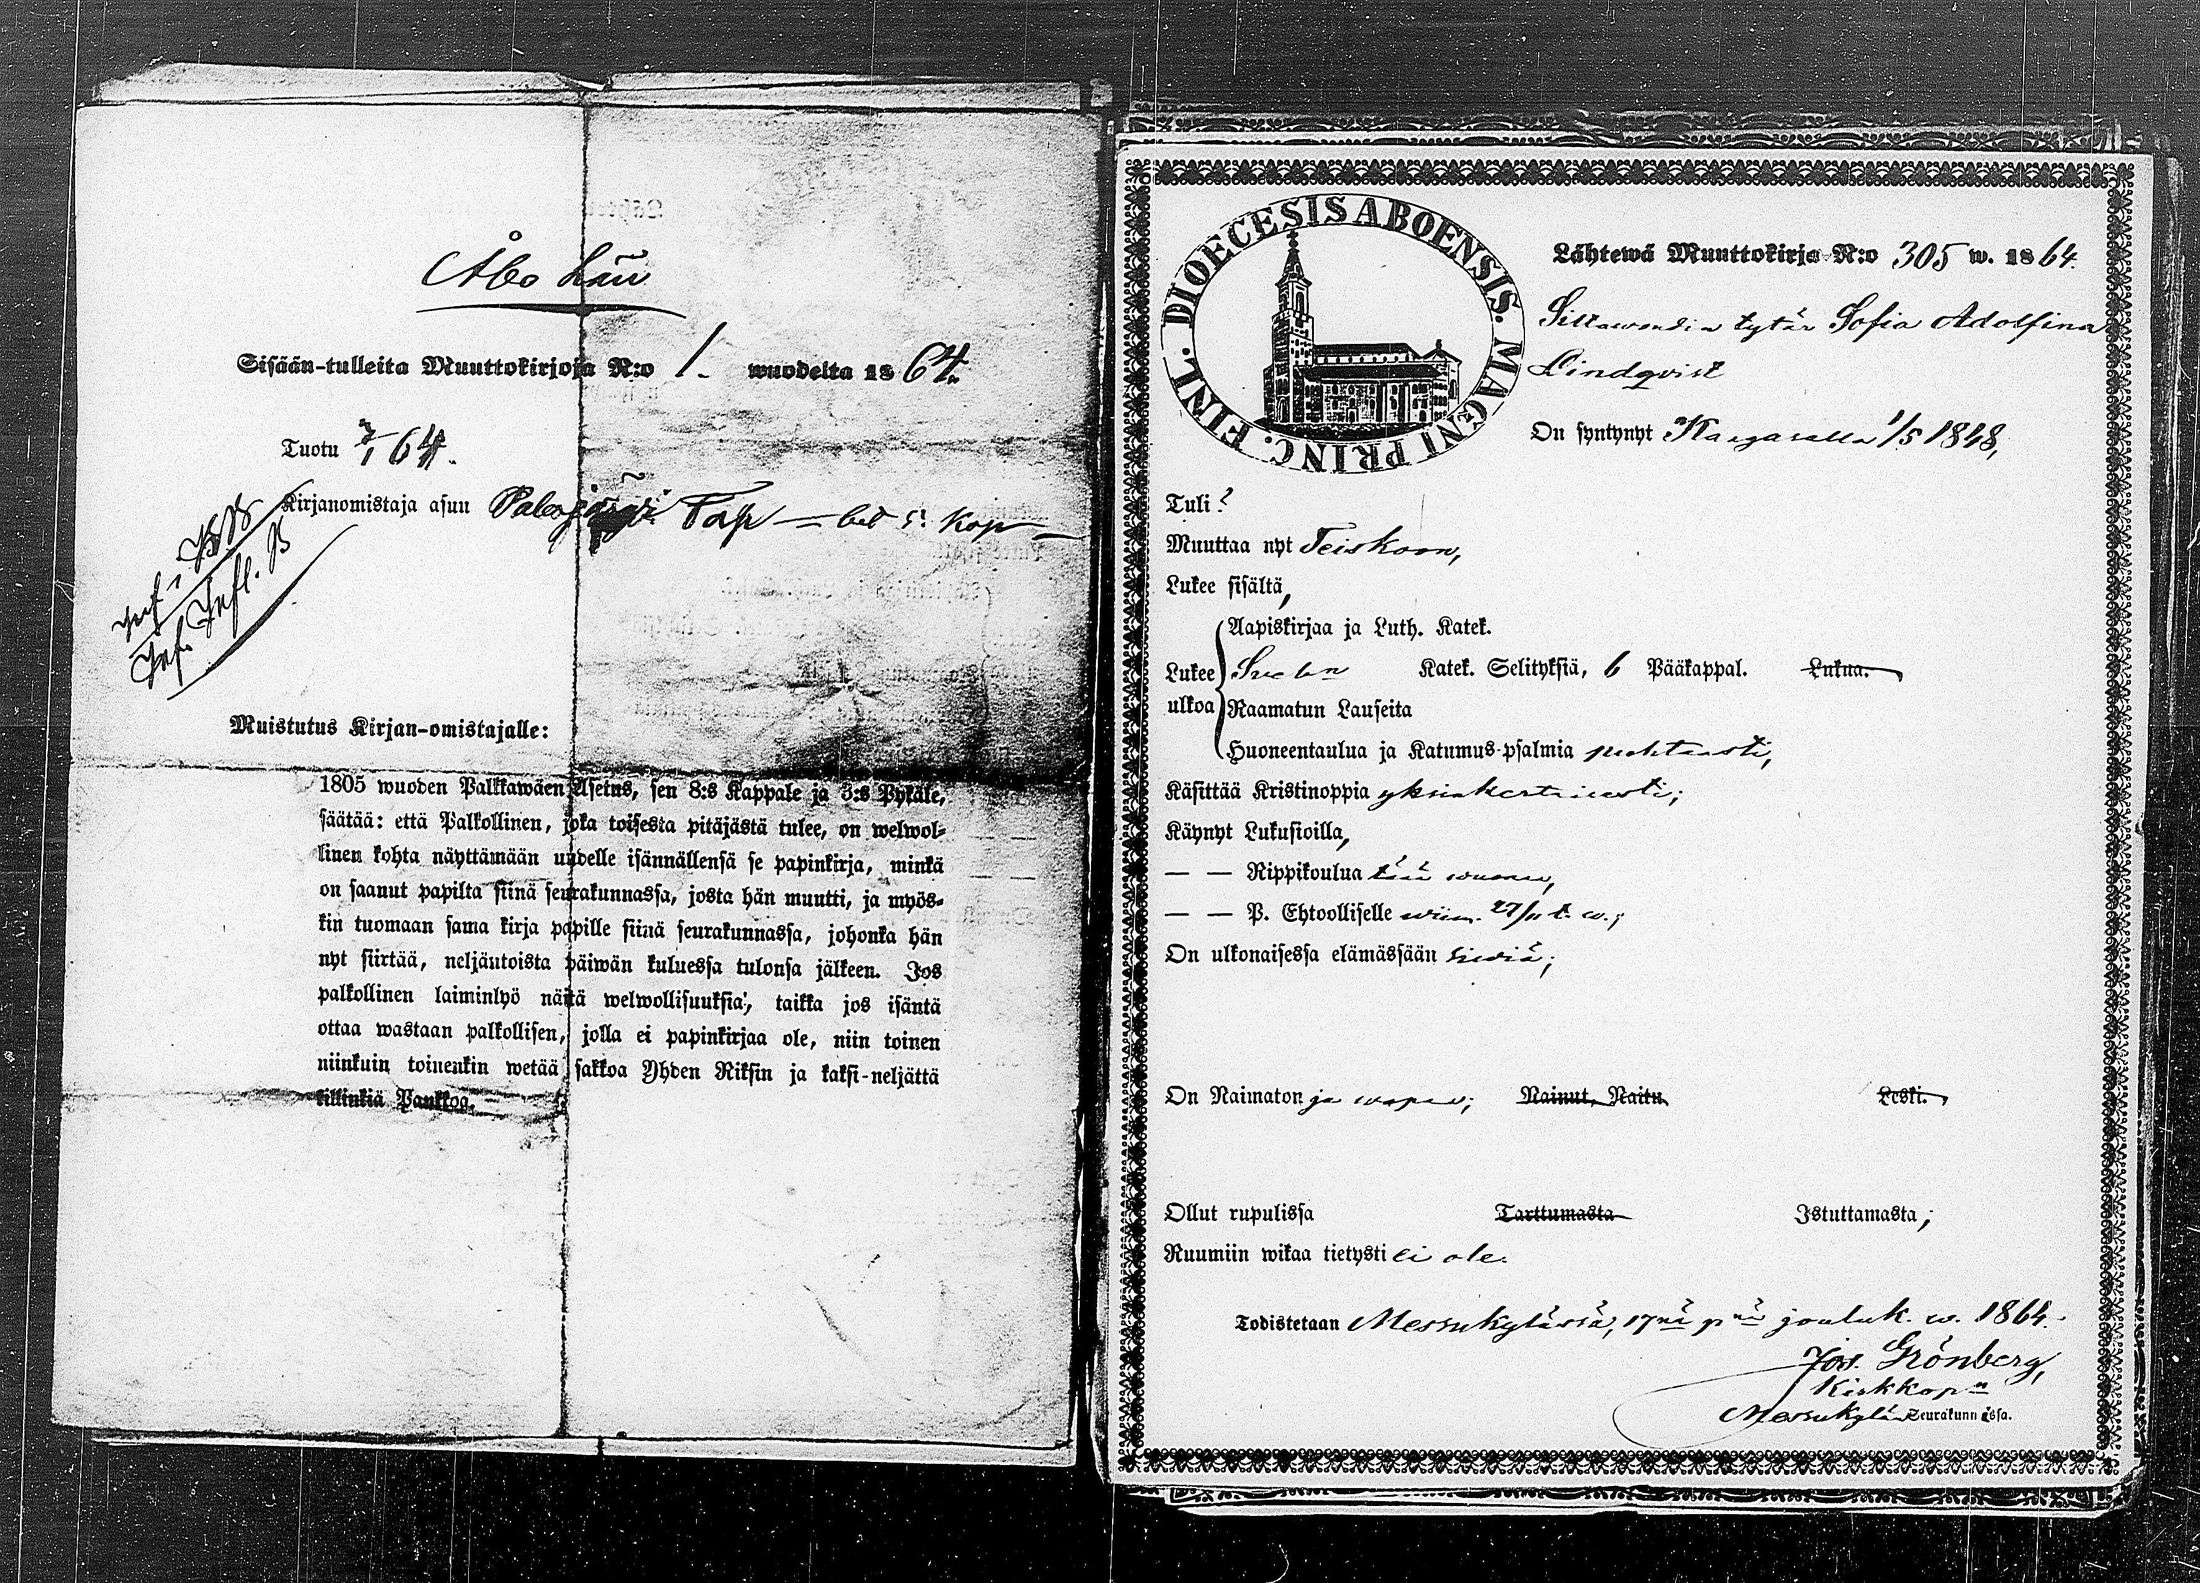 Åbo Län
Sisään-tulleita Muuttokirjoja N:o 1. wuodelta 1864.
Tuotu 7/1 64.
Kirjanomistaja asuu Palojärvi Torp
Inf. Infl. B
Muistutus Kirjan-omistajalle:
1805 wuoden Palkkawäen Asetus, sen 8:s Kappale ja 3:s Pykäle,
säätää: että Palkollinen, joka toisesta pitäjästä tulee, on welwol-
linen kohta näyttämään uudelle isännällensä se papinkirja, minkä
on saanut papilta siinä seurakunnassa, josta hän muutti, ja myös-
kin tuomaan sama kirja papille siinä seurakunnassa, johonka hän
nyt siirtää, neljäntoista päiwän kuluessa tulonsa jälkeen. Jos
palkollinen laiminlyö näitä welwollisuuksia, taikka jos isäntä
ottaa wastaan palkollisen, jolla ei papinkirjaa ole, niin toinen
niinkuin toinenkin wetää sakkoa Yhden Riksin ja kaksi-neljättä
killinkiä Pankkoa.
DIOECESIS ABOENSIS. MAGNI PRINC. FINL.
Lähtewä Muuttokirja N:o 305 w. 1864.
tytär Sofia Adolfina
Lindqvist
On syntynyt Kangasalla 1/5 1848,
Tuli?
Muuttaa nyt Teiskoon,
Lukee sisältä,
Aapiskirjaa ja Luth. Katek.
Lukee ulkoa Katek. Selityksiä, 6 Pääkappal. Lukua.
Raamatun Lauseita
Huoneentaulua ja Katumus-psalmia puhtaasti,
Käsittää Kristinoppia yksinkertaisesti;
Käynyt Lukusioilla,
— — Rippikoulua tänä wuonna,
— — P. Ehtoolliselle wiim. 27/11 t. w.;
On ulkonaisessa elämässään siewä;
On Naimaton ja wapaa; Nainut, Naitu Leski.
Ollut rupulissa Tarttumasta Istuttamasta;
Ruumiin wikaa tietysti ei ole.
Todistetaan Messukylässä, 17nä pnä jouluk. w. 1864.
Jos. Grönberg,
Kirkkoh
Messukylän Seurakunnassa.